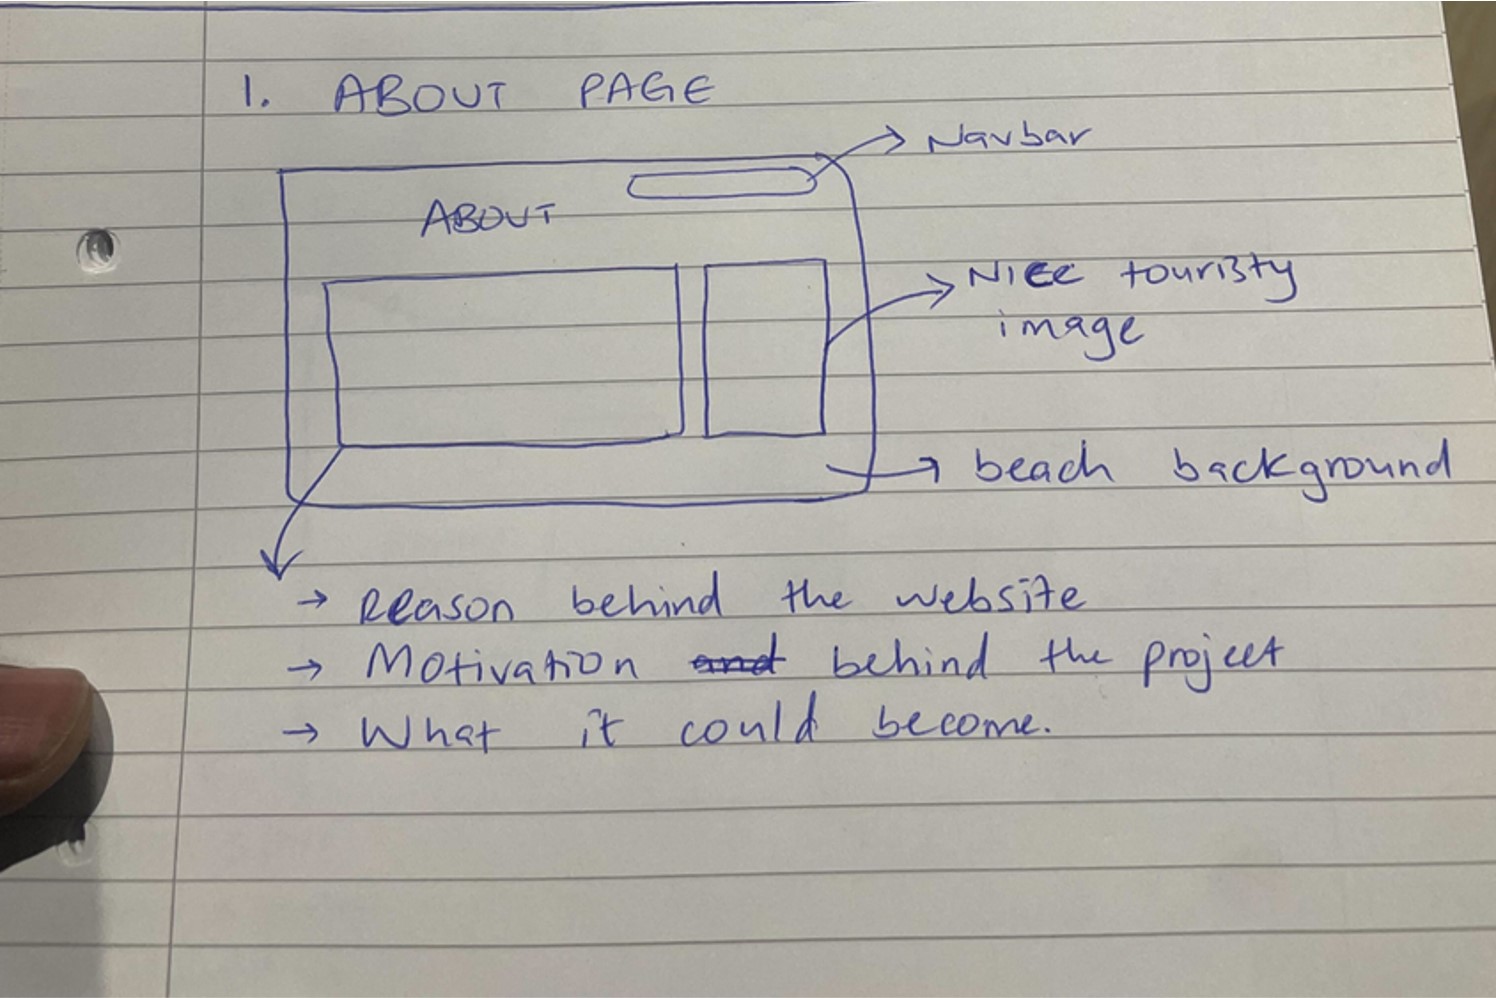 1. ABOUT PAGE
Navbar
ABOUT
Nice touristy
image
→ beach background
→ Reason behind the website
→ Motivation and behind the project
→ What it could become.